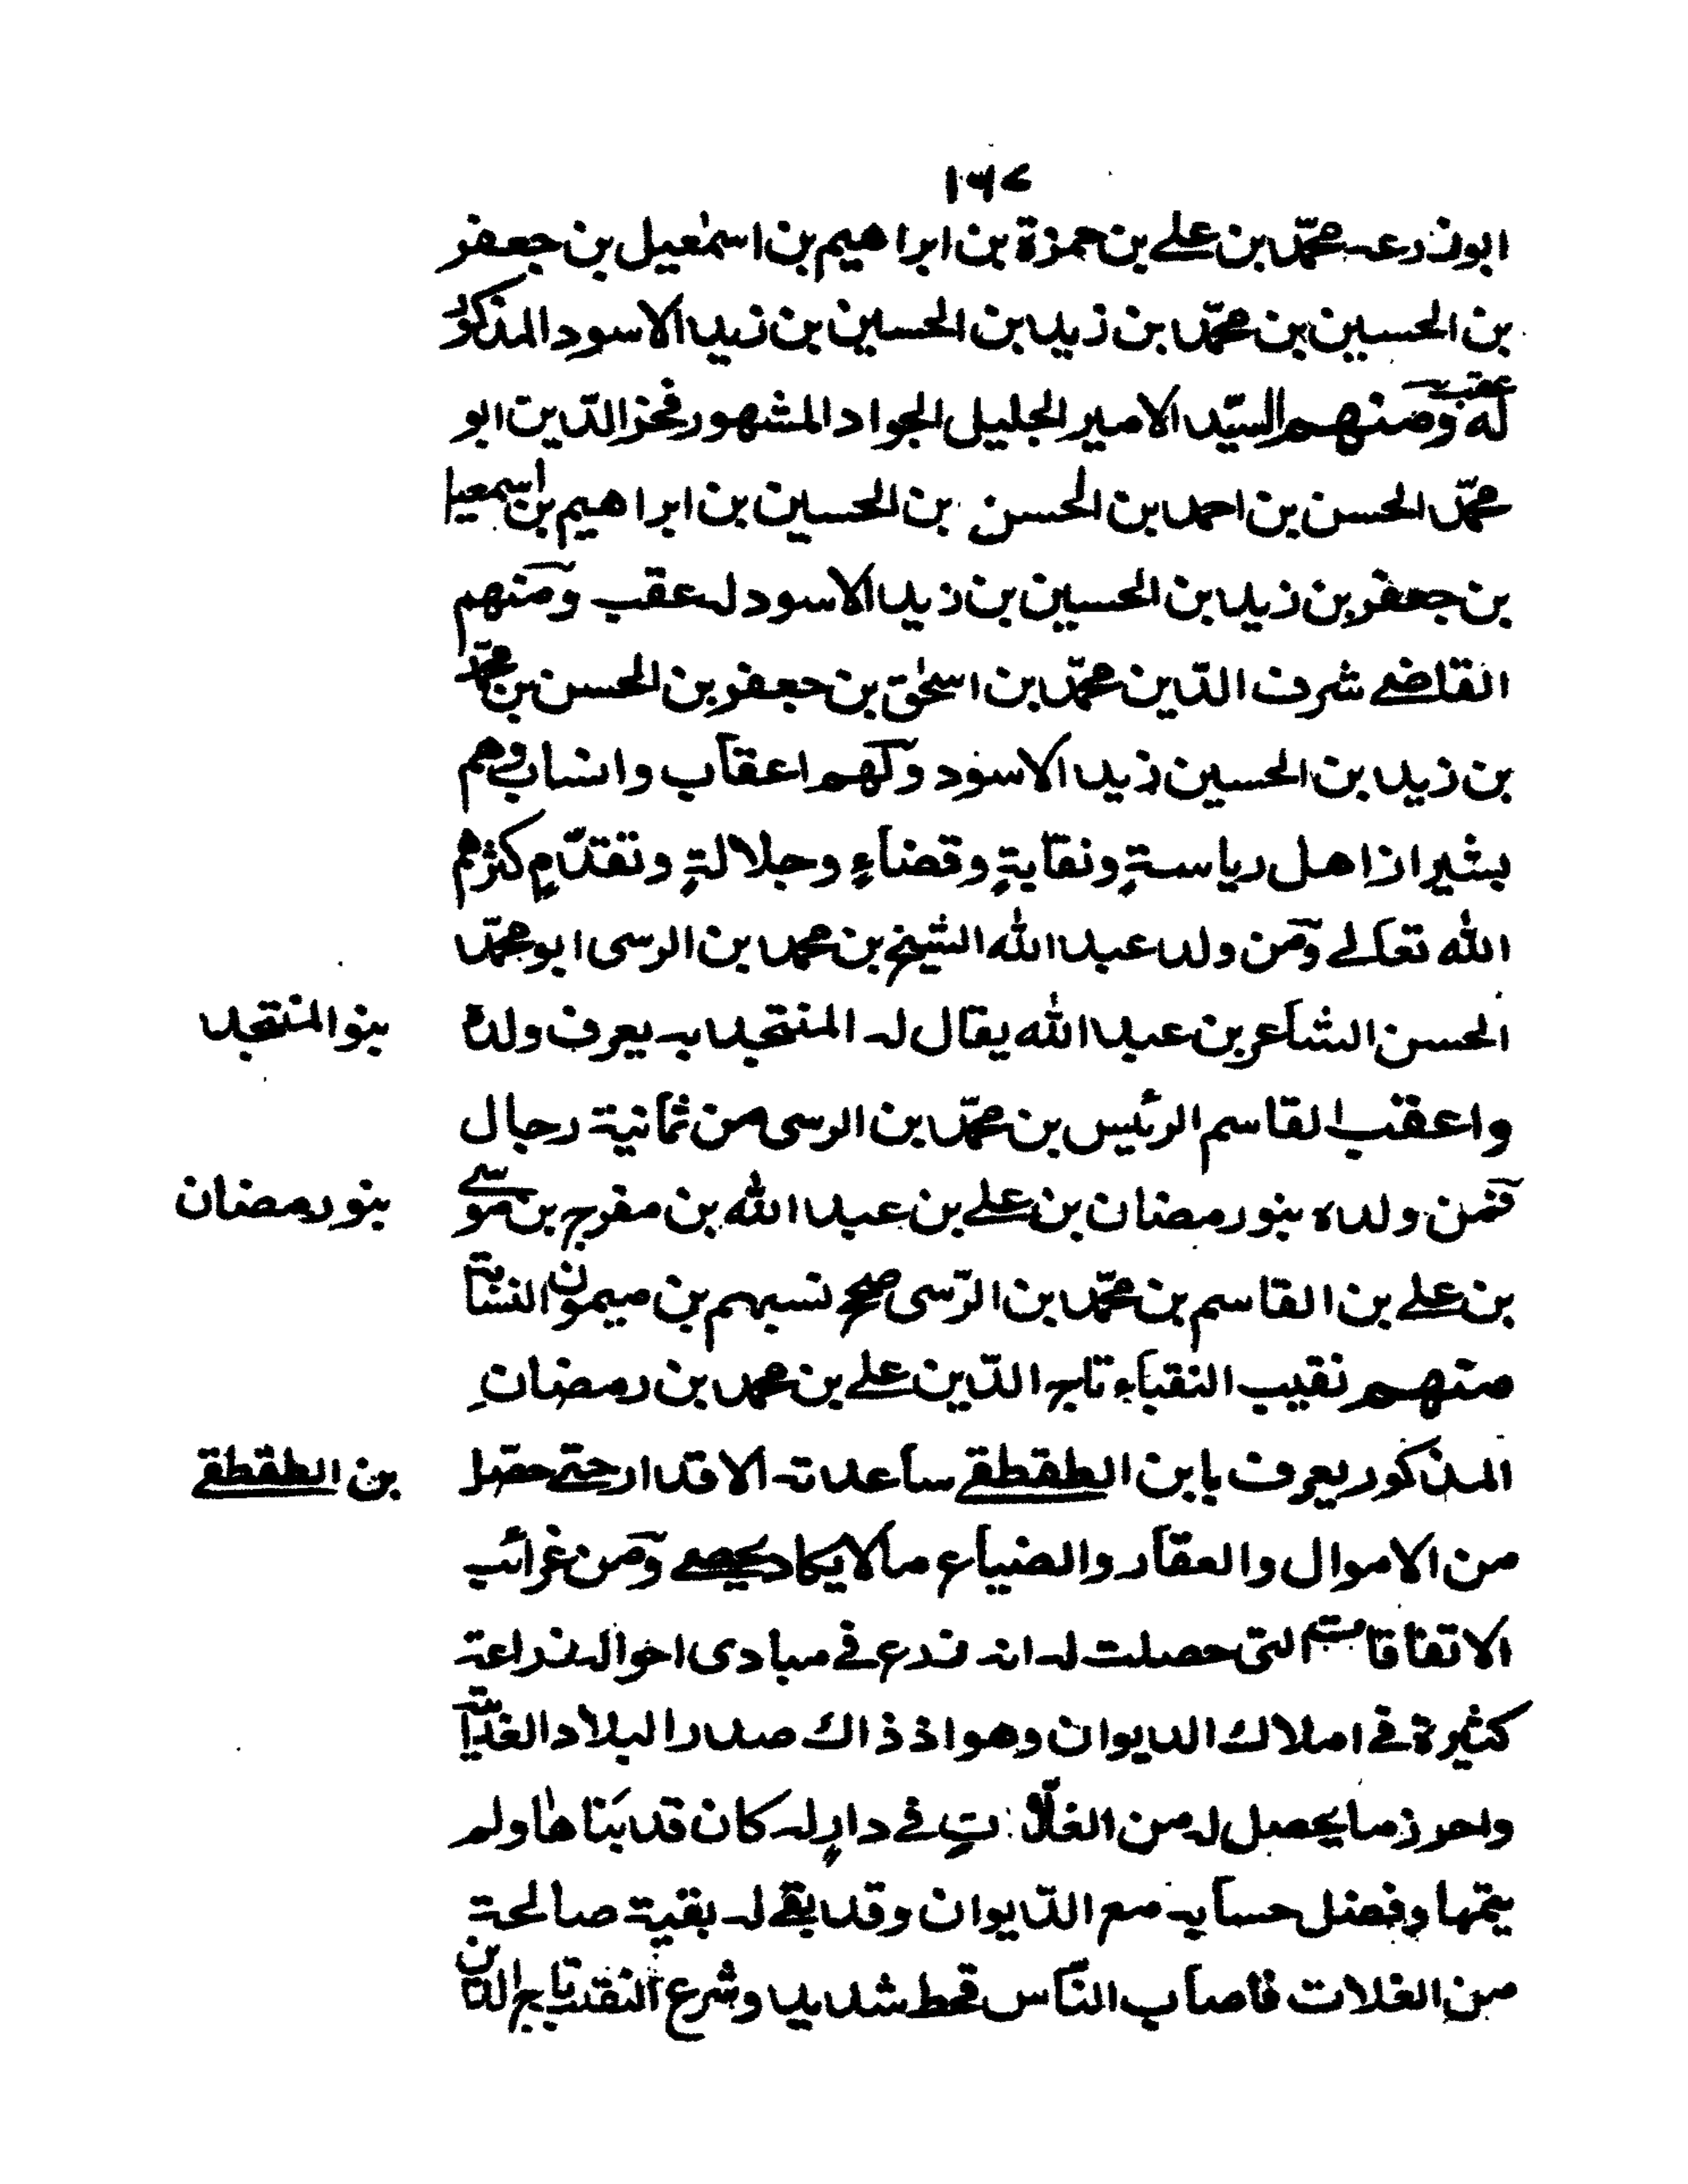 ١٦٧
ابوزرعه محمّد بن على بن حمزة بن ابراهيم بن اسمٰعيل بن جعفر
بن الحسين بن محمّد بن زيد بن الحسين بن زيد الاسود المذكور
له عقب ومنهم السيّد الامير الجليل الجواد المشهور فخر الدّين ابو
محمّد الحسن بن احمد بن الحسن بن الحسين بن ابراهيم بن اسمعيل
بن جعفر بن زيد بن الحسين بن زيد الاسود له عقب ومنهم
القاضى شرف الدّين محمّد بن اسحٰق بن جعفر بن الحسن بن محمّد
بن زيد بن الحسين زيد الاسود ولهم اعقاب وانساب وهم
بشيراز اهل رياسةٍ ونقابةٍ وقضاءٍ وجلالةٍ وتقدّمٍ كثرهم
الله تعالى ومن ولد عبد الله الشيخ بن محمد بن الرسى ابو محمّد
الحسن الشاعر بن عبد الله يقال له المنتجد به يعرف ولده
بنو المنتجد
واعقب القاسم الرئيس بن محمّد بن الرسى من ثمانية رجال
فمن ولده بنو رمضان بن على بن عبد الله بن مفرج بن موسى
بنو رمضان
بن على بن القاسم بن محمّد بن الرّسى صحح نسبهم بن ميمون النسّابة
منهم نقيب النقباء تاج الدّين على بن محمد بن رمضان
المذكور يعرف بابن الطقطقى ساعدته الاقدار حتى حصّل
بن الطقطقى
من الاموال والعقار والضياع ما لا يكاد يحصى ومن غرائب
الاتفاقات التى حصلت له انه زرع فى مبادى احواله زراعة
كثيرة فى املاك الديوان وهو اذ ذاك صدر البلاد الفراتية
واحرز ما يحصل له من الغلّات فى دارٍ له كان قد بناها ولم
يتمها وفضل حسابه مع الدّيوان وقد بقى له بقية صالحة
من الغلات فاصاب النّاس قحط شديد وشرع النقيب تاج الدين